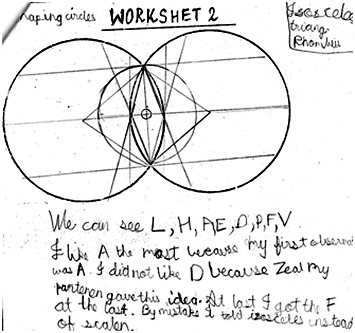 haping circles WORKSHET 2
Isoscela
triang
Rhombus
We can see L, H, A, E, D, P, F, V
I like A the most because my first observat
was A. I did not like D because Zeal my
partener gave this idea. At last I got the F
at the last. By mistake I told isosceles instead
of scalen.